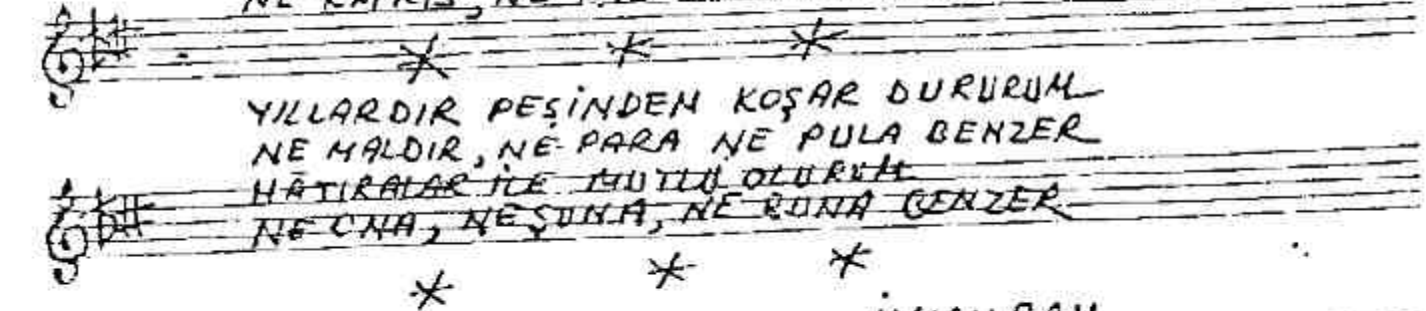 YILLARDIR PEŞİNDEN KOŞAR DURURUM
NE MALDIR, NE PARA NE PULA BENZER
HÂTIRALAR İLE MUTLU OLURUM
NE ONA, NE ŞUNA, NE BUNA BENZER